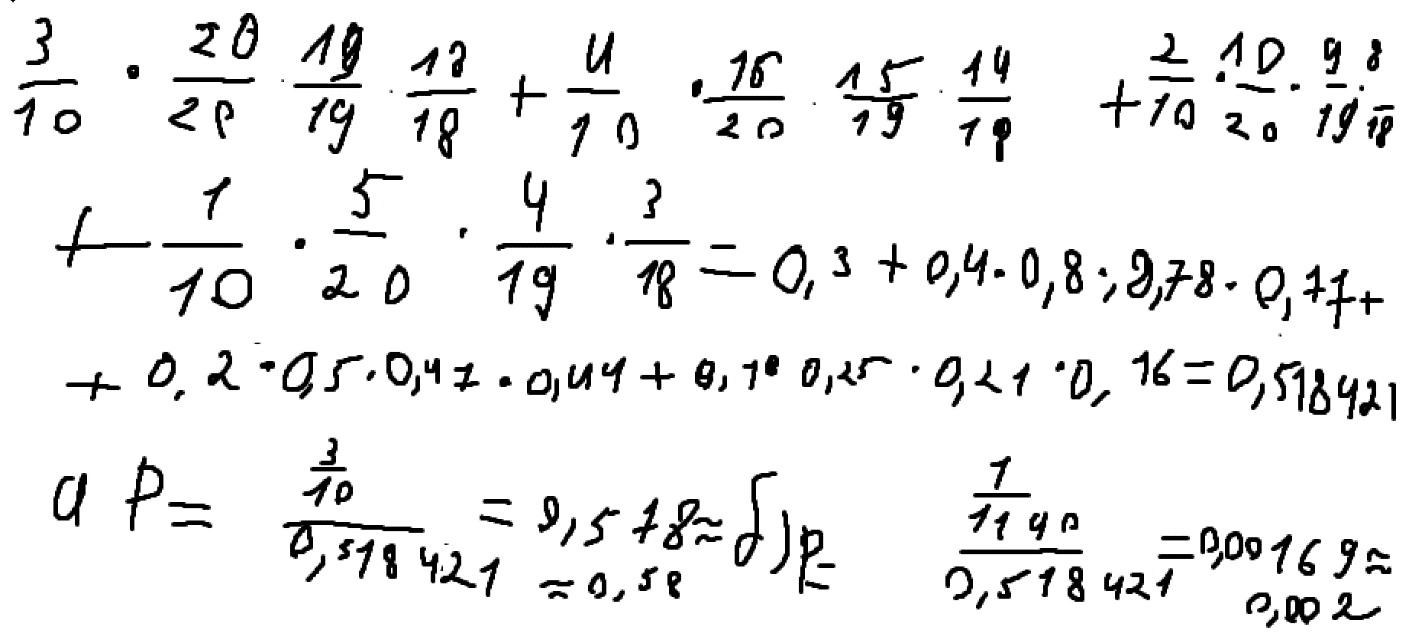 3/10 · 20/20 · 19/19 · 18/18 + 4/10 · 16/20 · 15/19 · 14/18 + 2/10 · 10/20 · 9/19 · 8/18
+ 1/10 · 5/20 · 4/19 · 3/18 = 0,3 + 0,4 · 0,8 · 0,78 · 0,77 +
+ 0,2 · 0,5 · 0,47 · 0,44 + 0,1 · 0,25 · 0,21 · 0,16 = 0,518421
а P = 3/10 / 0,518421 = 0,578 ≈ ≈ 0,58 б) P = 1/1140 / 0,518421 = 0,00169 ≈ 0,002